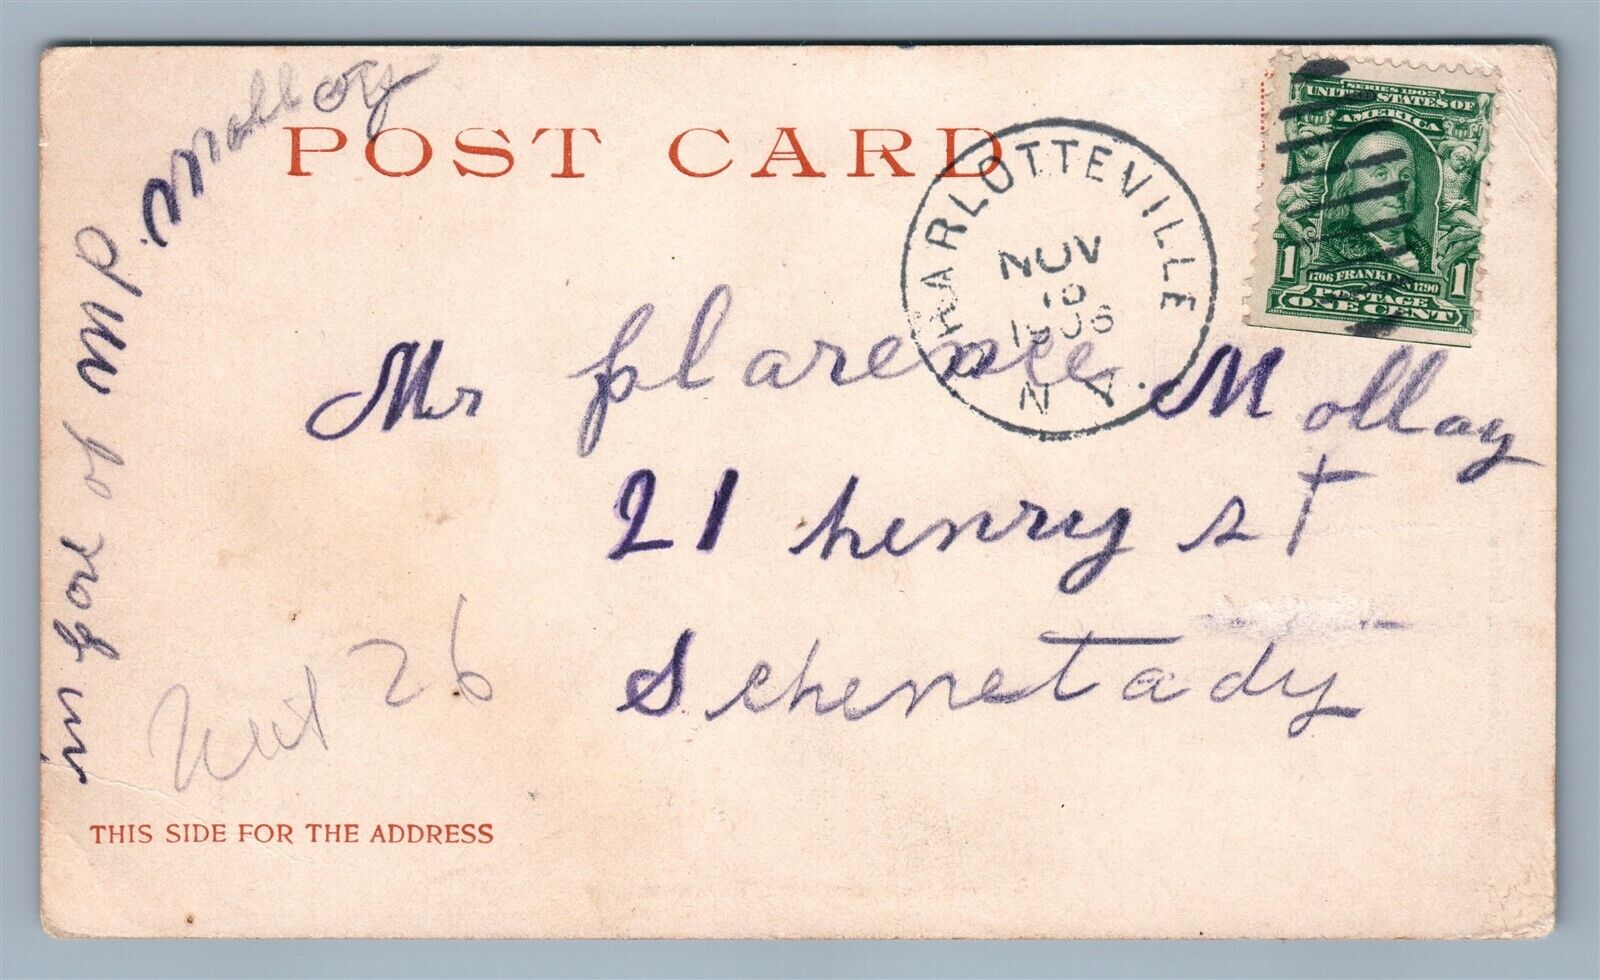 POST CARD
CHARLOTTEVILLE
NOV
10
1906
N Y.
SERIES 1902
UNITED STATES OF
AMERICA
1706 FRANKLIN 1790
1 1
POSTAGE
ONE CENT
Mr Clarence Molloy
21 henry st
Schenetady
in car of M.P. Molloy
26
THIS SIDE FOR THE ADDRESS